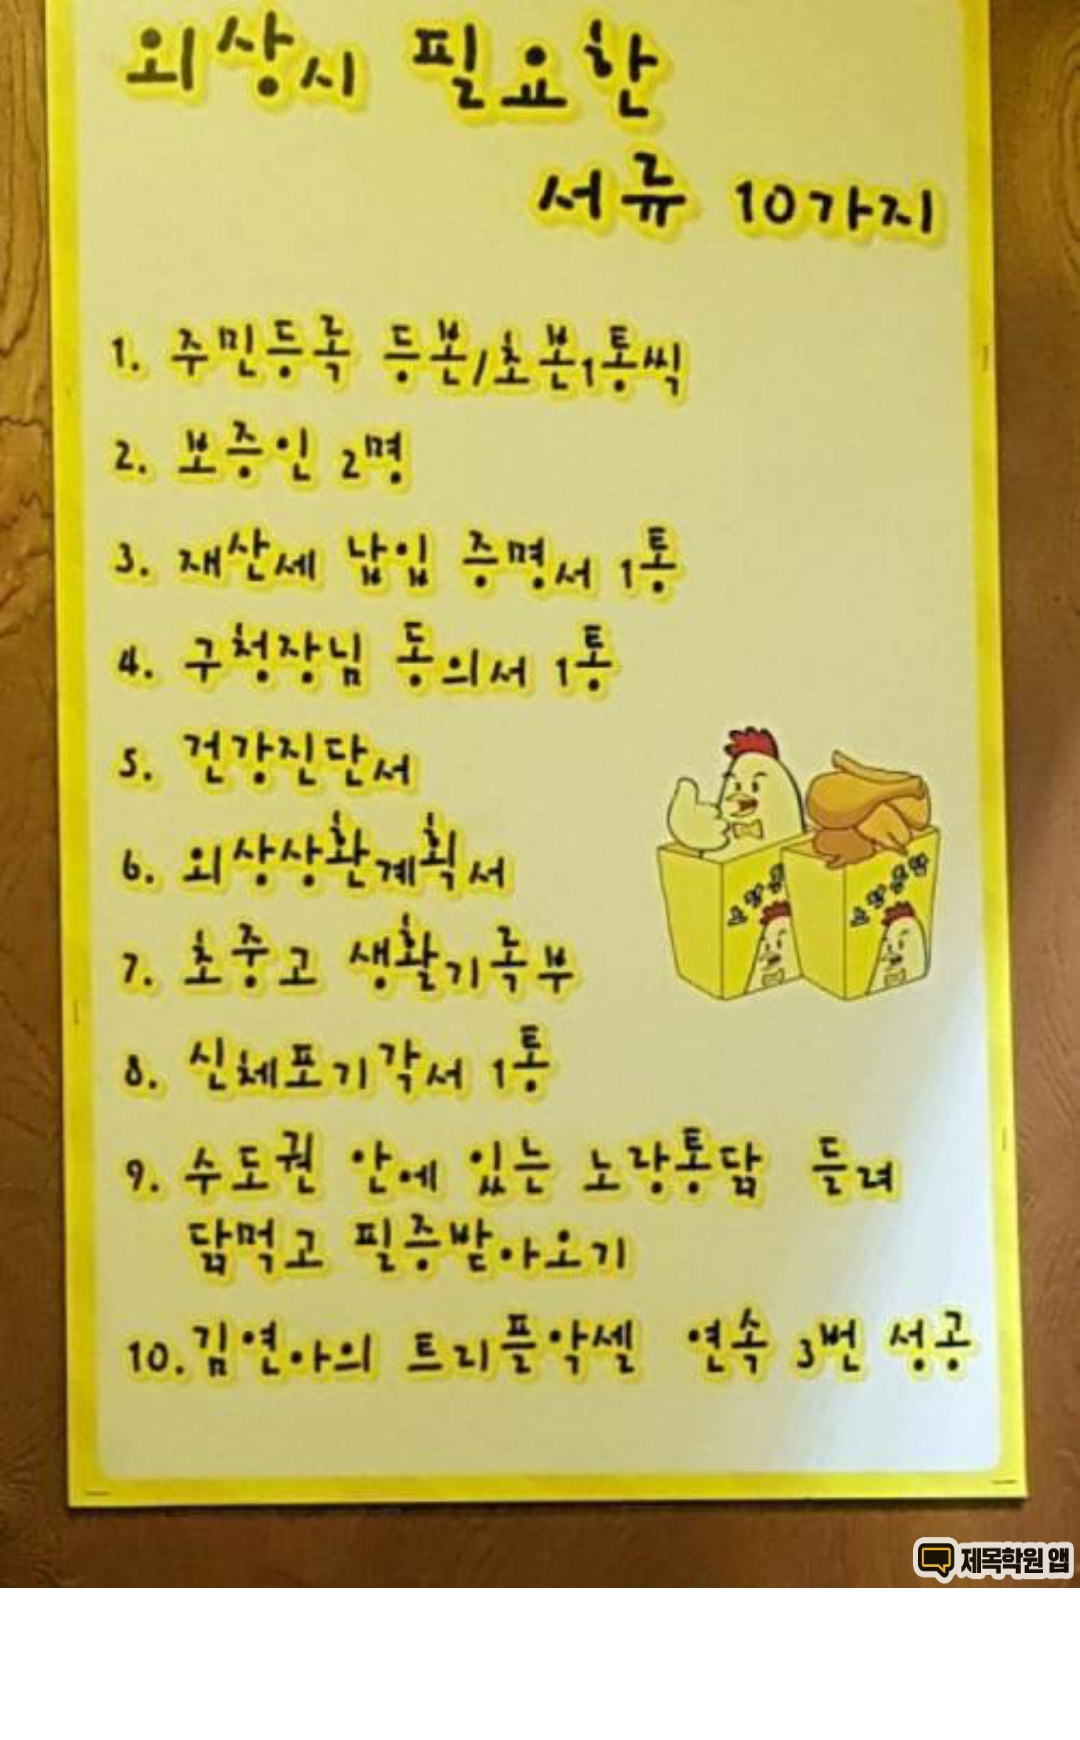 외상시 필요한
서류 10가지
1. 주민등록 등본/초본1통씩
2. 보증인 2명
3. 재산세 납입 증명서 1통
4. 구청장님 동의서 1통
5. 건강진단서
6. 외상상환계획서
7. 초중고 생활기록부
8. 신체포기각서 1통
9. 수도권 안에 있는 노랑통닭 들려
닭먹고 필증받아오기
10. 김연아의 트리플악셀 연속 3번 성공
노랑통닭
제목학원 앱